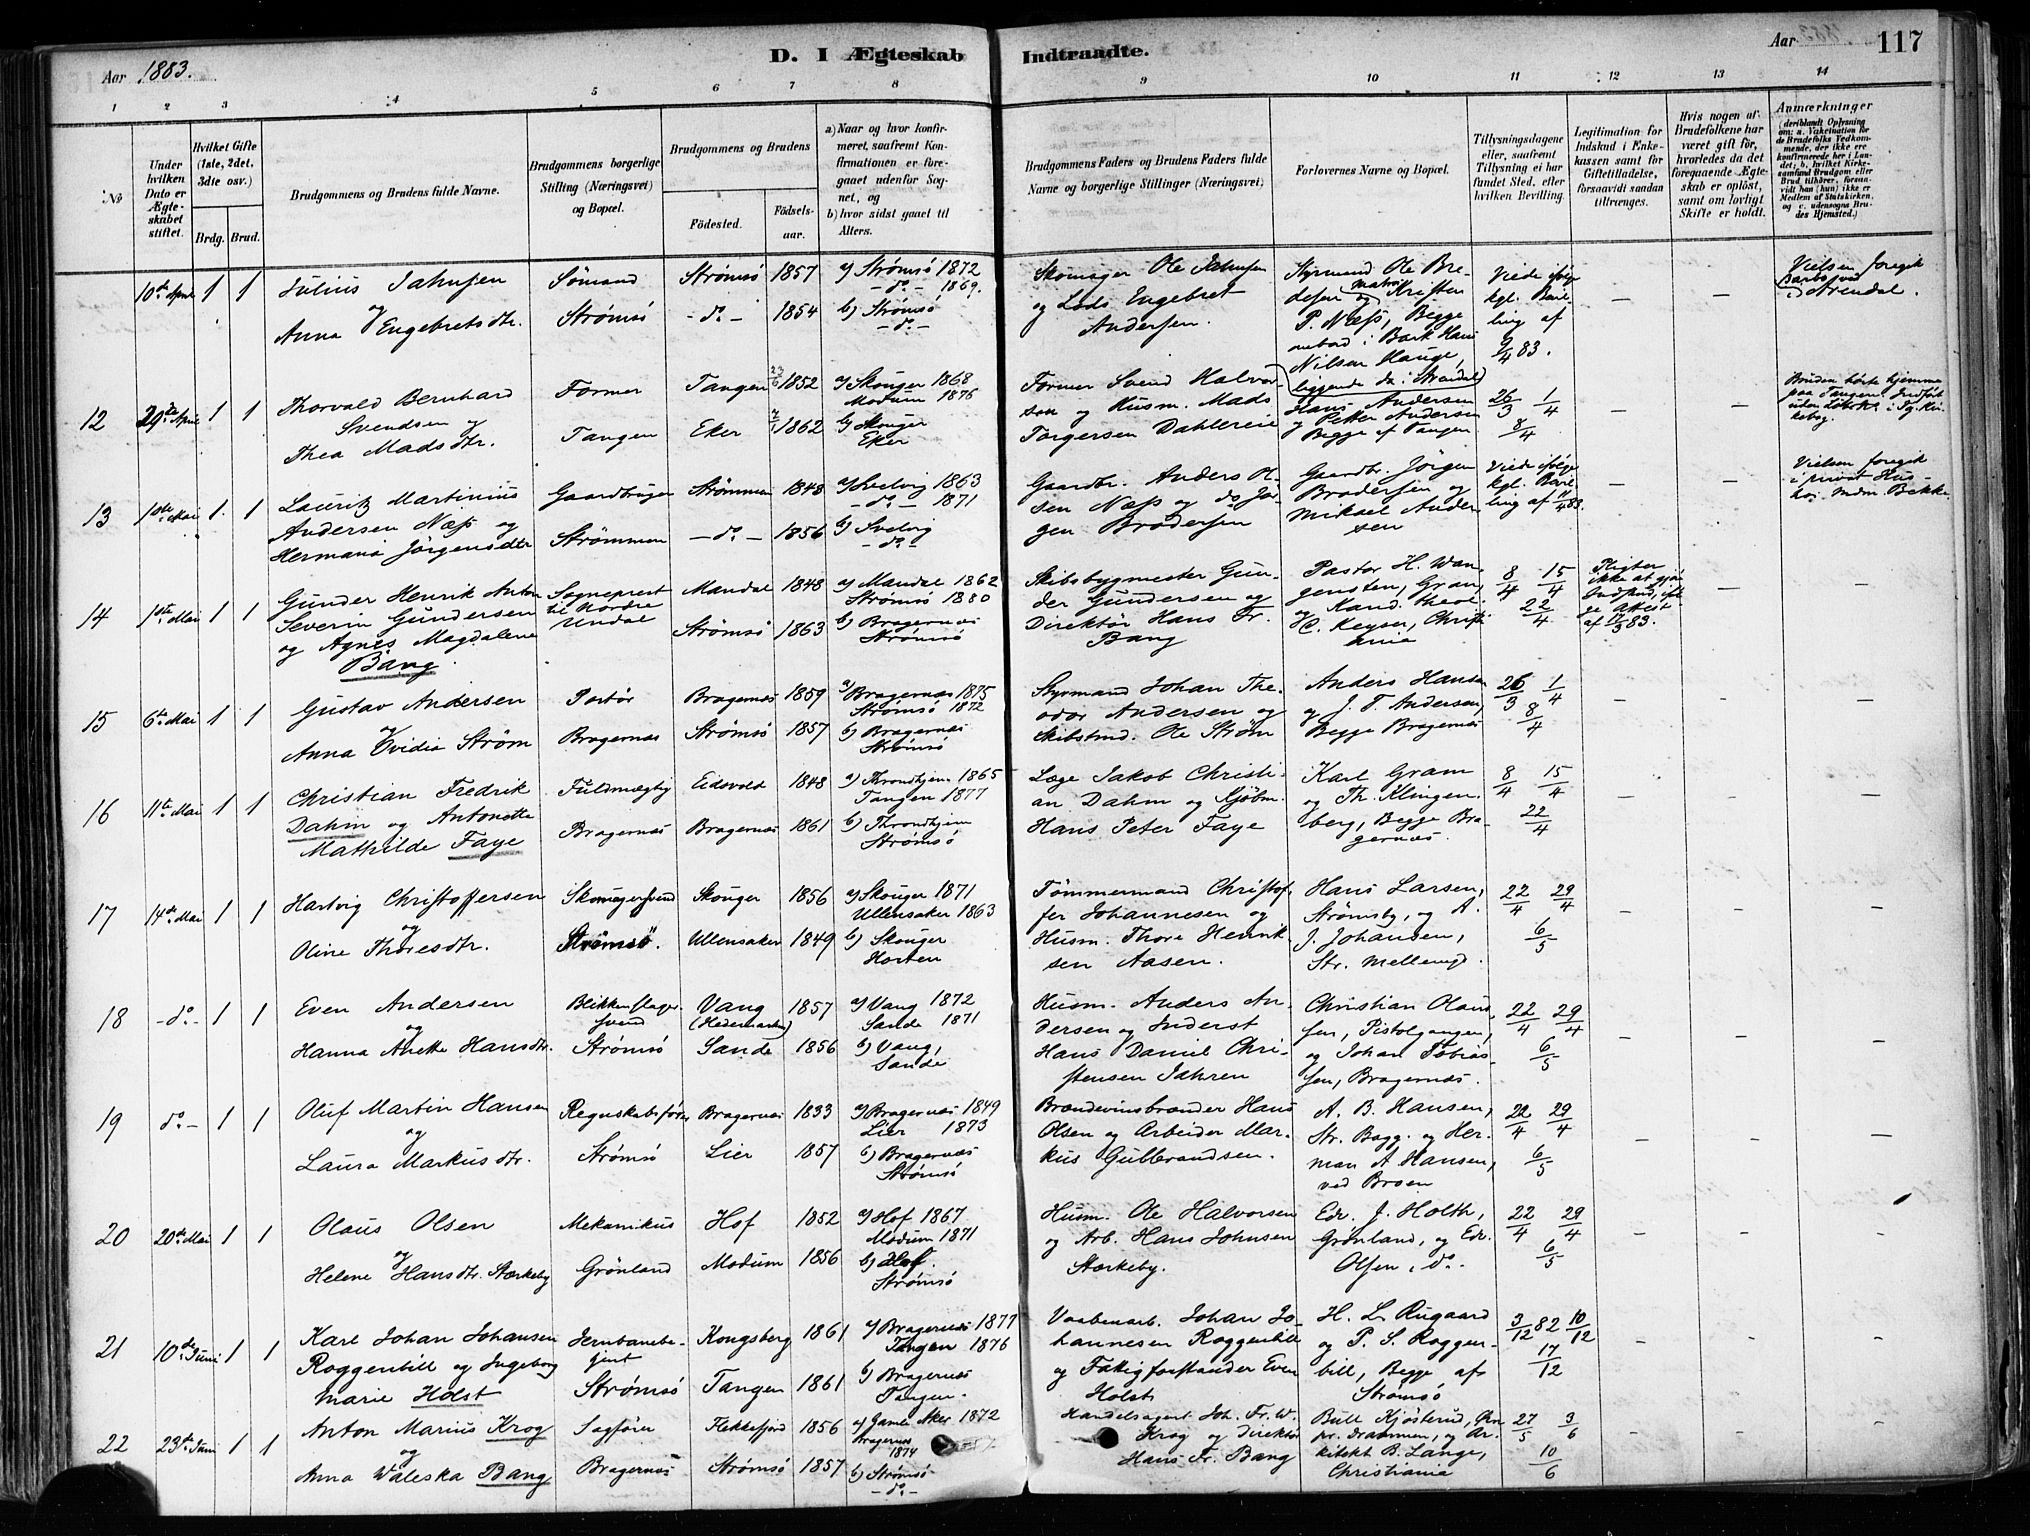 Aar 1883.
D. I Ægteskab Indtraadte.
Aar
117
1 2 3 4 5 6 7 8 9 10 11 12 13 14
No
Under hvilken Dato er Ægteskabet stiftet.
Hvilket Gifte (1ste, 2det, 3die osv.)
Brdg. Brud.
Brudgommens og Brudens fulde Navne.
Brudgommens borgerlige Stilling (Næringsvei) og Bopæl.
Brudgommens og Brudens
Fødested.
Fødselsaar.
a) Naar og hvor konfirmeret, saafremt Konfirmationen er foregaaet udenfor Sognet, og
b) hvor sidst gaaet til Alters.
Brudgommens Faders og Brudens Faders fulde Navne og borgerlige Stillinger (Næringsvei)
Forlovernes Navne og Bopæl.
Tillysningsdagene eller, saafremt Tillysning ei har fundet Sted, efter hvilken Bevilling.
Legitimation for Indskud i Enkekassen samt for Giftetilladelse, forsaavidt saadan tiltrænges.
Hvis nogen af Brudefolkene har været gift før, hvorledes da det foregaaende Ægteskab er opløst, samt om lovligt Skifte er holdt.
Anmærkninger
10de April 1 1
Julius Jahnsen
og
Anna Engebretsdtr.
Sömand
Strömsö
Strömsö 1857
-do- 1854
a) Strömsö 1872
-do- 1869.
b) Strömsö
-do-
Skomager Ole Jahnsen
og Lods Engebret
Andersen.
Styrmand Ole Bre-
desen og Matros Kristen
P. Næss, Begge
ombord i Bark Hans
Nilsen Hauge,
liggende da i Arendal
Viede ifølge
kgl. Bevil-
ling af
9/4 83.
Vielsen foregik
Barbogved
i Arendal.
12 29de April 1 1
Thorvald Bernhard
Svendsen og
Thea Madsdtr.
Former
Tangen
Tangen 23/6 1852
Eker 1862
a) Skouger 1868
Modum 1876
b) Skouger
Eker
Former Svend Halvor-
sen og Husm. Mads
Torgersen Dahlereie
Hans Andersen
og Petter Andersen
Begge af Tangen
26/3 1/4
8/4
Bruden hørte hjemme
paa Tangen. Indført
uden
13 1ste Mai 1 1
Lauritz Martinius
Andersen Næss og
Hermana Jörgensdtr
Gaardbruger
Strömmen
Strömmen 1848
-do- 1856
a) Svelvig 1863
-do- 1871
b) Svelvig
-do-
Gaardbr. Anders Ol-
sen Næss og do Jør-
gen Brodersen
Gaardbr. Jörgen
Brodersen og
Mikael Ander
sen
Viede ifølge
kgl. Bevil-
ling af 11/4 83.
Vielsen foregik
i privat Hus
hos Indm. Bakke.
14 1ste Mai 1 1
Gunder Henrik Anton
Severin Gundersen
og Agnes Magdalene
Bang.
Sogneprest
til Nordre
Undal
Mandal 1848
Strömsö 1863
a) Mandal 1862
Strömsö 1880
b) Bragernæs
Strömsö
Skibsbygmester Gun-
der Gundersen og
Direktör Hans Fr.
Bang
Pastor H. Wan-
gensten, Gran,
og Kand. theol.
C. Keyser, Christi
ania
8/4 15/4
22/4
Pligter
ikke at gjøre
Indskud, iføl-
ge Attest
af 17/3 83.
15 6te Mai 1 1
Gustav Andersen
og
Anna Ovidia Ström
Portör
Bragernæs
Bragernæs 1859
Strömsö 1857
a) Bragernæs 1875
Strömsö 1872
b) Bragernæs
Strömsö
Styrmand Johan The-
odor Andersen og
Skibstmd. Ole Ström
Anders Hansen
og J. T. Andersen,
Begge Bragernæs
26/3 1/4
8/4
16 11te Mai 1 1
Christian Fredrik
Dahm og Antonette
Mathilde Faye
Fuldmægtig
Bragernæs
Eidsvold 1848
Bragernæs 1861
a) Throndhjem 1865
Tangen 1877
b) Throndhjem
Strömsö
Læge Jakob Christi-
an Dahm og Kjöbm.
Hans Peter Faye
Karl Gram
og Th. Klingen
berg, Begge Bra-
gernæs.
8/4 15/4
22/4
17 14de Mai 1 1
Hartvig Christoffersen
og
Oline Thoresdtr.
Skomagersvend
Strömsö.
Skouger 1856
Ullensaker 1849
a) Skouger 1871
Ullensaker 1863
b) Skouger
Horten
Tömmermand Christof-
fer Johannesen og
Husm. Thore Henrik-
sen Aasen.
Hans Larsen,
Strömsby, og A.
J. Johansen,
Str. Mellemgd.
22/4 29/4
6/5
18 -do- 1 1
Even Andersen
og
Hanna Anette Hansdtr.
Blikkenslager
svend
Strömsö
Vang 1857
(Hedemarken)
Sande 1856
a) Vang 1872
Sande 1871
b) Vang,
Sande
Husm. Anders An-
dersen og Inderst
Hans Daniel Chri-
stensen Jahren
Christian Olaus
sen, Pistolgangen,
og Johan Tobias-
sen, Bragernæs.
22/4 29/4
6/5
19 do- 1 1
Oluf Martin Hansen
og
Laura Markusdtr.
Regnskabsfører
Strömsö
Bragernæs 1833
Lier 1857
a) Bragernæs 1849
Lier 1873
b) Bragernæs
Strömsö
Brændevinsbrænder Hans
Olsen og Arbeider Mar-
kus Gulbrandsen.
A. B. Hansen,
Str. Bagg. og Her-
man A Hansen,
ved Broen
22/4 29/4
6/5
20 20de Mai 1 1
Olaus Olsen
og
Helene Hansdtr. Stærkeby
Mekanikus
Grönland
Hof 1852
Modum 1856
a) Hof 1867
Modum 1871
b) Hof.
Strömsö
Husm. Ole Halvorsen
og Arb. Hans Johnsen
Stærkeby.
Edv. J. Holth,
Grönland, og Edv.
Olsen, do.
22/4 29/4
6/5
21 10de Juni 1 1
Karl Johan Johansen
Roggenbill og Ingeborg
Marie Holst
Jernbanebe-
tjent
Strömsö
Kongsberg 1861
Tangen 1861
a) Bragernæs 1877
Tangen 1876
b) Bragernæs
Tangen.
Vaabenarb. Johan Jo-
hannesen Roggenbill
og Fattigforstander Even
Holst
H. L. Rugaard
og P. S. Roggen-
bill, Begge af
Strömsö
3/12 82 10/12
17/12
22 23de Juni 1 1
Anton Marius Krog
og
Anna Valeska Bang
Sagfører
Bragernæs
Flekkefjord 1856
Strömsö 1857
a) Gamle Aker 1872
Bragernæs
1874
b) Strömsö
-do-
Handelsagent Joh. Fr. W.
Krog og Direktör
Hans Fr. Bang
Bull Kjösterud,
pr. Drammen, og Ar-
kitekt B. Lange,
Christiania
27/5 3/6
10/6